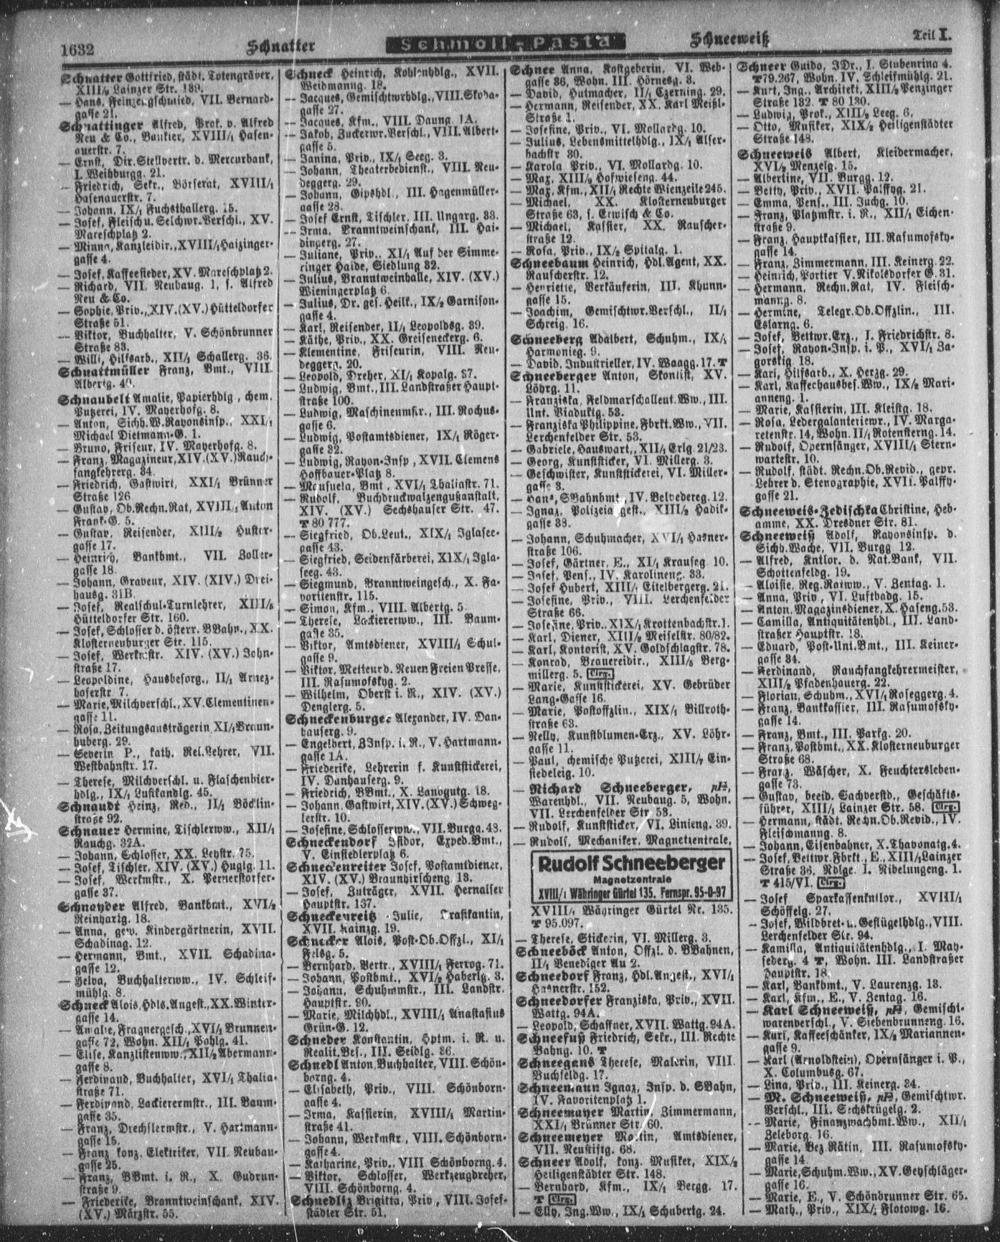 1632
Schnatter
Schmoll-Pasta
Schneeweiß
Teil I.
Schnatter Gottfried, städt. Totengräber,
XIII/2 Lainzer Str. 139.
gasse 21.
Schnattinger Alfred, Prok. v. Alfred
Neu & Co., Bankier, XVIII/1 Hasen-
auerstr. 7.
— Ernst, Dir. Stellvertr. d. Mercurbank,
I. Weihburgg. 21.
— Friedrich, Sekr., Börserat, XVIII/1
Hasenauerstr. 7.
— Johann, IX/1 Fuchsthallerg. 15.
— Josef, Fleischu. Selchwr. Verschl., XV.
Mareschplatz 2.
— Minna, Kanzleidir., XVIII/1 Haizinger-
gasse 4.
— Josef, Kaffeesieder, XV. Mareschplatz 2.
— Richard, VII. Neubaug. 1, s. Alfred
Neu & Co.
— Sophie, Priv., XIV. (XV.) Hütteldorfer
Straße 51.
— Viktor, Buchhalter, V. Schönbrunner
Straße 83.
— Willi, Hilfsarb., XII/1 Schallerg. 36.
Schnattmüller Franz, Bmt., VIII.
Albertg. 40.
Schnaubelt Amalie, Papierhdlg., chem.
Putzerei, IV. Mayerhofg. 8.
— Anton, Sichh. W. Rayonsinsp., XXI/1
Michael Dietmann-G. 1.
— Bruno, Friseur, IV. Mayerhofg. 8.
— Franz, Magazineur, XIV. (XV.) Rauch-
fangkehrerg. 34.
— Friedrich, Gastwirt, XXI/1 Brünner
Straße 126
— Gustav, Ob. Rechn. Rat, XVIII/1 Anton
Frank-G. 5.
— Gustav, Reisender, XIII/2 Huster-
gasse 17.
— Heinrich, Bankbmt., VII. Zoller-
gasse 18.
— Johann, Graveur, XIV. (XIV.) Drei-
hausg. 31B.
— Josef, Realschul-Turnlehrer, XIII/2
Hütteldorfer Str. 160.
— Josef, Schlosser d. österr. BBahn., XX.
Klosterneuburger Str. 115.
— Josef, Werkmstr. XIV. (XV.) John-
straße 17.
— Leopoldine, Hausbesorg., II/1 Arnez-
hoferstr. 7.
— Marie, Milchverschl., XV. Clementinen-
gasse 11.
— Rosa, Zeitungsausträgerin XI/1 Braun-
huberg. 29.
— Severin P., kath. Rel. Lehrer, VII.
Westbahnstr. 17.
— Therese, Milchverschl. u. Flaschenbier-
hdlg., IX/1 Lustkandlg. 45.
Schnaudt Heinz, Red., II/1 Böcklin-
straße 92.
Schnauer Hermine, Tischlersww., XII/1
Rauchg. 32A.
— Johann, Schlosser, XX. Leystr. 75.
— Josef, Tischler, XIV. (XV.) Huglg. 11.
— Josef, Werkmstr., X. Pernerstorfer-
gasse 37.
Schnayder Alfred, Bankbmt., XVI/2
Reinhartg. 18.
— Anna, gew. Kindergärtnerin, XVII.
Schadinag. 12.
— Hermann, Bmt., XVII. Schadina-
gasse 12.
— Helva, Buchhaltersww., IV. Schleif-
mühlg. 8.
Schneck Alois, Hdls. Angest., XX. Winter-
gasse 14.
— Amalie, Fragnergesch., XVI/1 Brunnen-
gasse 72, Wohn. XII/1 Pohlg. 41.
— Elise, Kanzlistensww., XII/2 Abermann-
gasse 8.
— Ferdinand, Buchhalter, XVI/1 Thalia-
straße 71.
— Ferdinand, Lackierermstr., III. Baum-
gasse 35.
— Franz, Drechslermstr., V. Hartmann-
gasse 15.
— Franz, konz. Elektriker, VII. Neubau-
gasse 25.
— Franz, BBmt. i. R., X. Gudrun-
straße 9.
— Friederike, Branntweinschank, XIV.
(XV.) Märzstr. 55.
Schneck Heinrich, Kohlenhdlg., XVII.
Weidmanng. 18.
— Jacques, Gemischtwrhdlg., VIII. Skoda-
gasse 27.
— Jacques, Kfm., VIII. Daung. 1A.
— Jakob, Zuckerwr. Verschl., VIII. Albert-
gasse 5.
— Janina, Priv., IX/1 Seeg. 3.
— Johann, Theaterbedienst., VIII. Neu-
deggerg. 29.
— Johann, Gipshdl., III. Hagenmüller-
gasse 28.
— Josef Ernst, Tischler, III. Ungarg. 33.
— Irma, Branntweinschank, III. Hai-
dingerg. 27.
— Juliane, Priv., XI/1 Auf der Simme-
ringer Haide, Siedlung 32.
— Julius, Branntweinhalle, XIV. (XV.)
Wieningerplatz 6.
— Julius, Dr. ges. Heilk., IX/2 Garnison-
gasse 4.
— Karl, Reisender, II/1 Leopoldsg. 39.
— Käthe, Priv., XX. Greiseneckerg. 6.
— Klementine, Friseurin, VIII. Neu-
deggerg. 20.
— Leopold, Dreher, XI/1 Kopalg. 57.
— Ludwig, Bmt., III. Landstraßer Haupt-
straße 100.
— Ludwig, Maschinenmstr., III. Rochus-
gasse 6.
— Ludwig, Postamtsdiener, IX/1 Röger-
gasse 32.
— Ludwig, Rayon-Insp., XVII. Clemens
Hoffbauer-Platz 8.
— Manuela, Bmt., XVI/1 Thaliastr. 71.
— Rudolf, Buchdruckwalzengußanstalt,
XIV. (XV.) Sechshauser Str. 47.
T 80 777.
— Siegfried, Ob. Leut., XIX/1 Iglasee-
gasse 43.
— Siegfried, Seidenfärberei, XIX/1 Igla-
seeg. 43.
— Siegmund, Branntweingesch., X. Fa-
voritenstr. 115.
— Simon, Kfm., VIII. Albertg. 5.
— Therese, Lackierersww., III. Baum-
gasse 35.
— Viktor, Amtsdiener, XVIII/1 Schul-
gasse 9.
— Viktor, Metteurd. Neuen Freien Presse,
III. Rasumofskyg. 2.
— Wilhelm, Oberst i. R., XIV. (XV.)
Denglerg. 5.
Schneckenburger Alexander, IV. Dan-
hauserg. 9.
— Engelbert, BInsp. i. R., V. Hartmann-
gasse 1A.
— Friederike, Lehrerin f. Kunststickerei,
IV. Danhauserg. 9.
— Friedrich, BBmt., X. Laxogutg. 18.
— Johann, Gastwirt, XIV. (XV.) Schweg-
lerstr. 10.
— Josefine, Schlosserww., VII. Burgg. 43.
Schneckendorf Isidor, Exped. Bmt.,
V. Einsiedlerplatz 6.
Schneckenreiter Josef, Postamtsdiener,
XIV. (XV.) Braunhirscheng. 13.
— Josef, Zuträger, XVII. Hernalser
Hauptstr. 137.
Schneckenreitz Julie, Trafikantin,
XVII. Hainzg. 19.
Schnecker Alois, Post-Ob. Offzl., XI/1
Felsg. 5.
— Bernhard, Vertr., XVIII/1 Ferrog. 71.
— Johann, Postbmt., XVI/2 Haberlg. 3.
— Johann, Schuhmstr., III. Landstr.
Hauptstr. 90.
— Marie, Milchhdl., XVIII/1 Anastasius
Grün-G. 12.
Schneder Konstantin, Hptm. i. R. u.
Realit. Bes., III. Seidlg. 36.
Schnedl Anton, Buchhalter, VIII. Schön-
borng. 4.
— Elisabeth, Priv., VIII. Schönborn-
gasse 4.
— Irma, Kassierin, XVIII/1 Martin-
straße 41.
— Johann, Werkmstr., VIII. Schönborn-
gasse 4.
— Katharine, Priv., VIII. Schönborng. 4.
— Viktor, Schlosser, Werkzeugdreher,
VIII. Schönborng. 4.
Schnedlitz Brigitta, Priv., VIII. Josef-
städter Str. 51.
Schnee Anna, Kostgeberin, VI. Web-
gasse 36, Wohn. III. Hörnesg. 3.
— David, Hutmacher, II/1 Czerning. 29.
— Hermann, Reisender, XX. Karl Meißl-
Straße 1.
— Josefine, Priv., VI. Mollardg. 10.
— Julius, Lebensmittelhdlg., IX/1 Alser-
bachstr. 30.
— Karola, Priv., VI. Mollardg. 10.
— Max, XIII/2 Hofwieseng. 44.
— Max, Kfm., XII/1 Rechte Wienzeile 245.
— Michael, XX. Klosterneuburger
Straße 63, s. Erwisch & Co.
— Michael, Kassier, XX. Rauscher-
straße 12.
— Rosa, Priv., IX/2 Spitalg. 1.
Schneebaum Heinrich, Hdl. Agent, XX.
Rauscherstr. 12.
— Henriette, Verkäuferin, III. Khunn-
gasse 15.
— Joachim, Gemischtwr. Verschl., II/1
Schreig. 16.
Schneeberg Adalbert, Schuhm., IX/1
Harmonieg. 9.
— David, Industrieller, IV. Waagg. 17. T
Schneeberger Anton, Skontist, XV.
Löhrg. 11.
— Franziska, Feldmarschalleut. Ww., III.
Unt. Viaduktg. 53.
— Franziska Philippine, Fbrkt. Ww., VII.
Lerchenfelder Str. 53.
— Gabriele, Hauswart., XII/1 Erlg. 21/23.
— Georg, Kunststicker, VI. Millerg. 3.
— Geschwister, Kunststickerei, VI. Miller-
gasse 3.
— Hans, SBahnbmt., IV. Belvedereg. 12.
— Ignaz, Polizeiangest., XIII/2 Hadik-
gasse 38.
— Johann, Schuhmacher, XVI/1 Hasner-
straße 106.
— Josef, Gärtner, E., XI/1 Krauseg. 10.
— Josef, Pens., IV. Karolineng. 33.
— Josef Hubert, XIII/1 Eitelbergerg. 21.
— Josefine, Priv., VIII. Lerchenfelder
Straße 66.
— Josefine, Priv., XIX/1 Krottenbachstr. 1.
— Karl, Diener, XIII/2 Meiselstr. 80/82.
— Karl, Kontorist, XV. Goldschlagstr. 78.
— Konrad, Brauereidir., XIII/2 Berg-
millerg. 5. Clrg.
— Marie, Kunststickerei, XV. Gebrüder
Lang-Gasse 16.
— Marie, Postoffzlin., XIX/1 Billroth-
straße 63.
— Nelly, Kunstblumen-Erz., XV. Löhr-
gasse 11.
— Paul, chemische Putzerei, XIII/1 Ein-
siedeleig. 10.
— Richard Schneeberger, pH,
Warenhdl., VII. Neubaug. 5, Wohn.
VII. Lerchenfelder Str. 53.
— Rudolf, Kunststicker, VI. Linieng. 39.
— Rudolf, Mechaniker, Magnetzentrale,
Rudolf Schneeberger
Magnetzentrale
XVIII/1 Währinger Gürtel 135. Fernspr. 95-0-97
XVIII/1 Währinger Gürtel Nr. 135.
T 95.097.
— Therese, Stickerin, VI. Millerg. 3.
Schneeböck Anton, Offzl. d. BBahnen,
II/1 Venediger Au 2.
Schneedorf Franz, Hdl. Angest., XVI/1
Hasnerstr. 152.
Schneedorfer Franziska, Priv., XVII.
Wattg. 94A.
— Leopold, Schaffner, XVII. Wattg. 94A.
Schneefuß Friedrich, Sekr., III. Rechte
Bahng. 10. T
Schneegans Therese, Malerin, VIII.
Buchfeldg. 17.
Schneemann Ignaz, Insp. d. SBahn,
IV. Favoritenplatz 1.
Schneemayer Martin, Zimmermann,
XXI/1 Brünner Str. 60.
Schneemeyer Martin, Amtsdiener,
VII. Neustiftg. 68.
Schneer Adolf, konz. Musiker, XIX/2
Heiligenstädter Str. 148.
— Bernhard, Kfm., IX/1 Bergg. 17.
T Clrg.
— Elly, Ing. Ww., IX/1 Schubertg. 24.
Schneer Guido, JDr., I. Stubenring 4.
T 79.267, Wohn. IV. Schleifmühlg. 21.
— Kurt, Ing., Architekt, XIII/2 Penzinger
Straße 132. T 80 130.
— Ludwig, Prok., XIII/2 Leeg. 6.
— Otto, Musiker, XIX/2 Heiligenstädter
Straße 148.
Schneeweis Albert, Kleidermacher,
XVI/2 Menzelg. 15.
— Albertine, VII. Burgg. 12.
— Betty, Priv., XVII. Palffyg. 21.
— Emma, Pens., III. Juchg. 10.
— Franz, Platzmstr. i. R., XII/1 Eichen-
straße 9.
— Franz, Hauptkassier, III. Rasumofsky-
gasse 14.
— Franz, Zimmermann, III. Keinerg. 22.
— Heinrich, Portier V. Nikolsdorfer G. 31.
— Hermann, Rechn. Rat, IV. Fleisch-
manng. 8.
— Hermine, Telegr. Ob. Offzlin., III.
Eslarng. 6.
— Josef, Bettwr. Erz., I. Friedrichstr. 8.
— Josef, Rayon-Insp. i. P., XVI/1 Za-
gorskig. 18.
— Karl, Hilfsarb., X. Herzg. 29.
— Karl, Kaffeehausbes. Ww., IX/2 Mari-
anneng. 1.
— Marie, Kassierin, III. Kleistg. 18.
— Rosa, Ledergalanteriewr., IV. Marga-
retenstr. 14, Wohn. II/1 Rotensterng. 14.
— Rudolf, Opernsänger, XVIII/1 Stern-
wartestr. 10.
— Rudolf, städt. Rechn. Ob. Revid., gepr.
Lehrer d. Stenographie, XVII. Palffy-
gasse 21.
Schneeweis-Jedischka Christine, Heb-
amme, XX. Dresdner Str. 81.
Schneeweiß Adolf, Rayonsinsp. d.
Sichh. Wache, VII. Burgg. 12.
— Alfred, Kntlor. d. Nat. Bank, VII.
Schottenfeldg. 19.
— Aloisie, Reg. Ratsww., V. Zentag. 1.
— Anna, Priv., VI. Luftbadg. 15.
— Anton, Magazinsdiener, X. Haseng. 53.
— Camilla, Antiquitätenhdl., III. Land-
straßer Hauptstr. 18.
— Eduard, Post-Unt. Bmt., III. Keiner-
gasse 34.
— Ferdinand, Rauchfangkehrermeister,
XIII/2 Pfadenhauerg. 22.
— Florian, Schuhm., XVI/1 Roseggerg. 4.
— Franz, Bankkassier, III. Rasumofsky-
gasse 14.
— Franz, Bmt., III. Parkg. 20.
— Franz, Postbmt., XX. Klosterneuburger
Straße 68.
— Franz, Wäscher, X. Feuchtersleben-
gasse 73.
— Gustav, beeid. Sachverstd., Geschäfts-
führer, XIII/1 Lainzer Str. 58. Clrg.
— Hermann, städt. Rechn. Ob. Revid., IV.
Fleischmanng. 8.
— Johann, Eisenbahner, X. Thavonatg. 4.
— Josef, Bettwr. Fbrkt., E., XIII/1 Lainzer
Straße 36, Ndlge. I. Nibelungeng. 1.
T 415/VI. Clrg.
— Josef, Sparkassenkutlor., XVIII/1
Schöffelg. 27.
— Josef, Wildbret- u. Geflügelhdlg., VIII.
Lerchenfelder Str. 94.
— Kamilla, Antiquitätenhdlg., I. May-
sederg. 4 T, Wohn. III. Landstraßer
Hauptstr. 18.
— Karl, Bankbmt., V. Laurenzg. 13.
— Karl, Kfm., E., V. Zentag. 16.
— Karl Schneeweiß, pH, Gemischt-
warenverschl., V. Siebenbrunneng. 16.
— Karl, Kaffeeschänker, IX/2 Mariannen-
gasse 9.
— Karl (Arnoldstein), Opernsänger i. P.,
X. Columbusg. 67.
— Lina, Priv., III. Keinerg. 34.
— M. Schneeweiß, pH, Gemischtwr.
Verschl., III. Sechskrügelg. 2.
— Marie, Finanzwachbmt. Ww., XII/1
Zeleborg. 16.
— Marie, Bez. Rätin, III. Rasumofsky-
gasse 14.
— Marie, Schuhm. Ww., XV. Geyschläger-
gasse 16.
— Marie, E., V. Schönbrunner Str. 65.
— Math., Priv., XIX/1 Flotowg. 16.